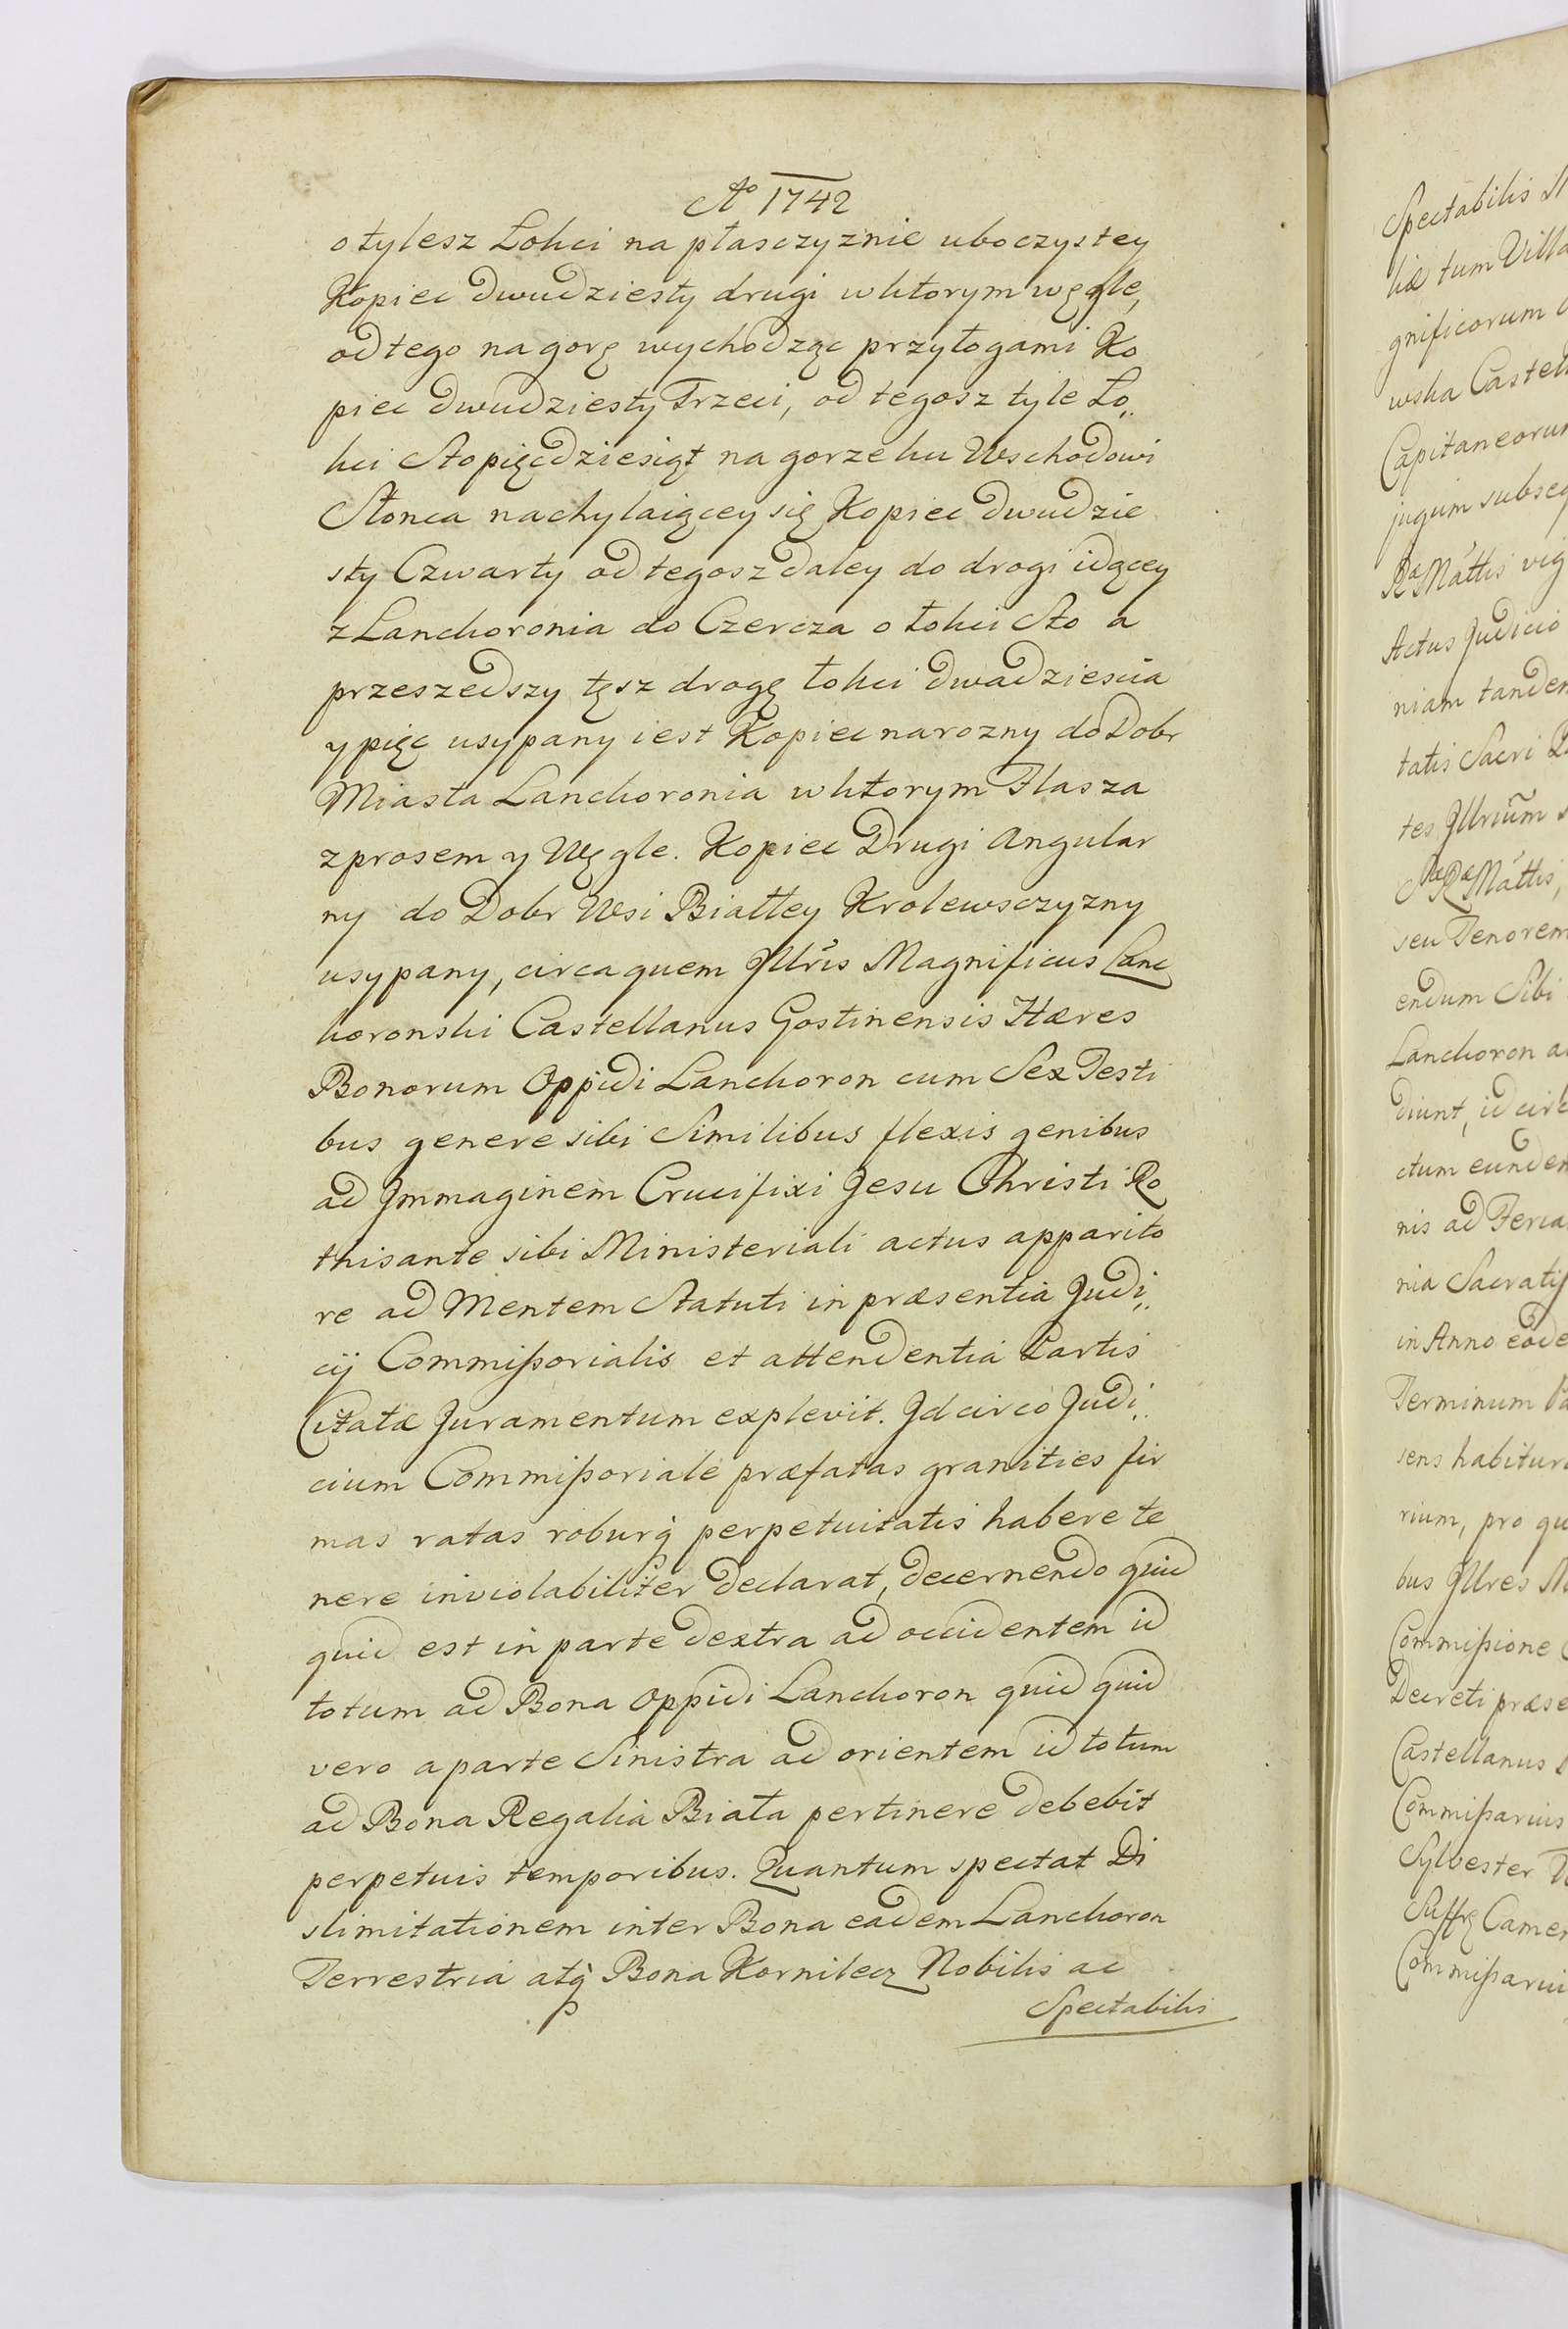 Ao 1742
o tylesz Łokci na płasczyznie uboczystey
Kopiec dwudziesty drugi w ktorym węgle,
od tego na gorę wychodząc przyłogami Ko
piec dwudziesty Trzeci, od tegosz tyle Ło„
kci Sto pięcdziesiąt na gorze ku Wschodowi
Słonca nachylaiącey się Kopiec dwudzie
sty Czwarty od tegosz daley do drogi idącey
z Lanckoronia do Czercza o łokci Sto a
przeszedszy tęsz drogę łokci dwadziescia
y pięc usypany iest Kopiec narozny do Dobr
Miasta Lanckoronia w ktorym Flasza
z prosem y Węgle. Kopiec Drugi Angular
ny do Dobr Wsi Białłey Krolewsczyzny
usypany, circa quem Jllris Magnificus Lanc
koronski Castellanus Gostinensis Hæres
Bonorum Oppidi Lanckoron cum Sex Testi
bus genere sibi Similibus flexis genibus
ad Jmmaginem Crucifixi Jesu Christi Ro
thisante sibi Ministeriali actus apparito
re ad Mentem Statuti in præsentia Judi„
cij Commißorialis et attendentia Partis
Citatæ Juramentum explevit. Jdcirco Judi„
cium Commißoriale præfatas granities fir
mas ratas roburq perpetuitatis habere te
nere inviolabiliter declarat, decernendo quid
quid est in parte dextra ad occidentem id
totum ad Bona Oppidi Lanckoron quid quid
vero a parte Sinistra ad orientem id totum
ad Bona Regalia Biała pertinere debebit
perpetuis temporibus. Quantum spectat Di
slimitationem inter Bona eadem Lanckoron
Terrestria atq Bona Kornilecz Nobilis ac
Spectabilis
Spectabilis
tum Villa
gnificorum
wska Castel
Capitaneorum
jugum subseq
Ræ Mattis vig
Actus Judicio
niam tandem
tatis Sacri
tes Jllrium
Mattis,
seu Tenorem
endum Sibi
Lanckoron
diunt, idcirc
ctum eunde
nis ad Feria
nia Sacratiss
in Anno eode
Terminum
sens habitur
rium, pro qu
bus Jllres
Commißione
Decreti præse
Castellanus
Commißarius
Sylvester
Camer
Commißarius